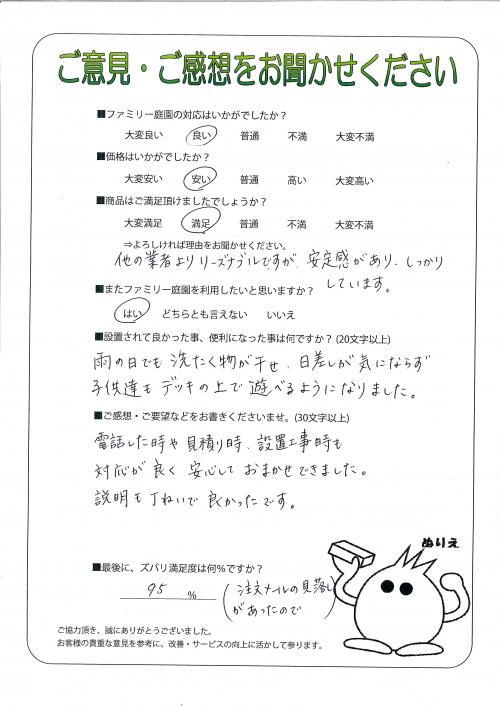 ご意見・ご感想をお聞かせください
■ファミリー庭園の対応はいかがでしたか？
大変良い 良い 普通 不満 大変不満
■価格はいかがでしたか？
大変安い 安い 普通 高い 大変高い
■商品はご満足頂けましたでしょうか？
大変満足 満足 普通 不満 大変不満
⇒よろしければ理由をお聞かせください。
他の業者よりリーズナブルですが、安定感があり、しっかり
しています。
■またファミリー庭園を利用したいと思いますか？
はい どちらとも言えない いいえ
■設置されて良かった事、便利になった事は何ですか？(20文字以上)
雨の日でも洗たく物が干せ、日差しが気にならず
子供達もデッキの上で遊べるようになりました。
■ご感想・ご要望などをお書きくださいませ。(30文字以上)
電話した時や見積り時、設置工事時も
対応が良く安心しておまかせできました。
説明も丁ねいで良かったです。
ぬりえ
■最後に、ズバリ満足度は何%ですか？
95 % (注文メールの見落し
があったので)
ご協力頂き、誠にありがとうございました。
お客様の貴重な意見を参考に、改善・サービスの向上に活かして参ります。